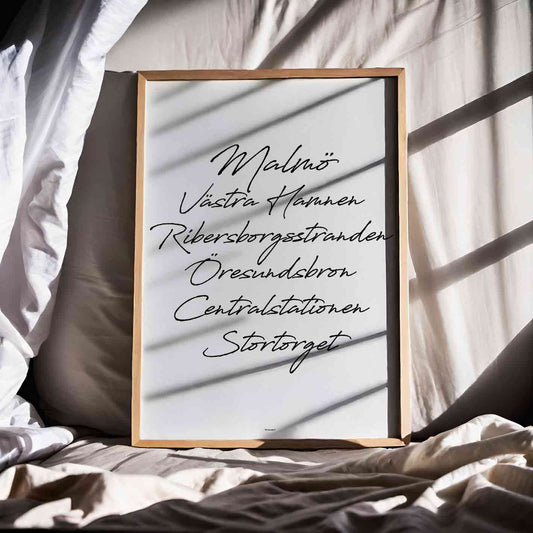 Malmö
Västra Hamnen
Ribersborgsstranden
Öresundsbron
Centralstationen
Stortorget